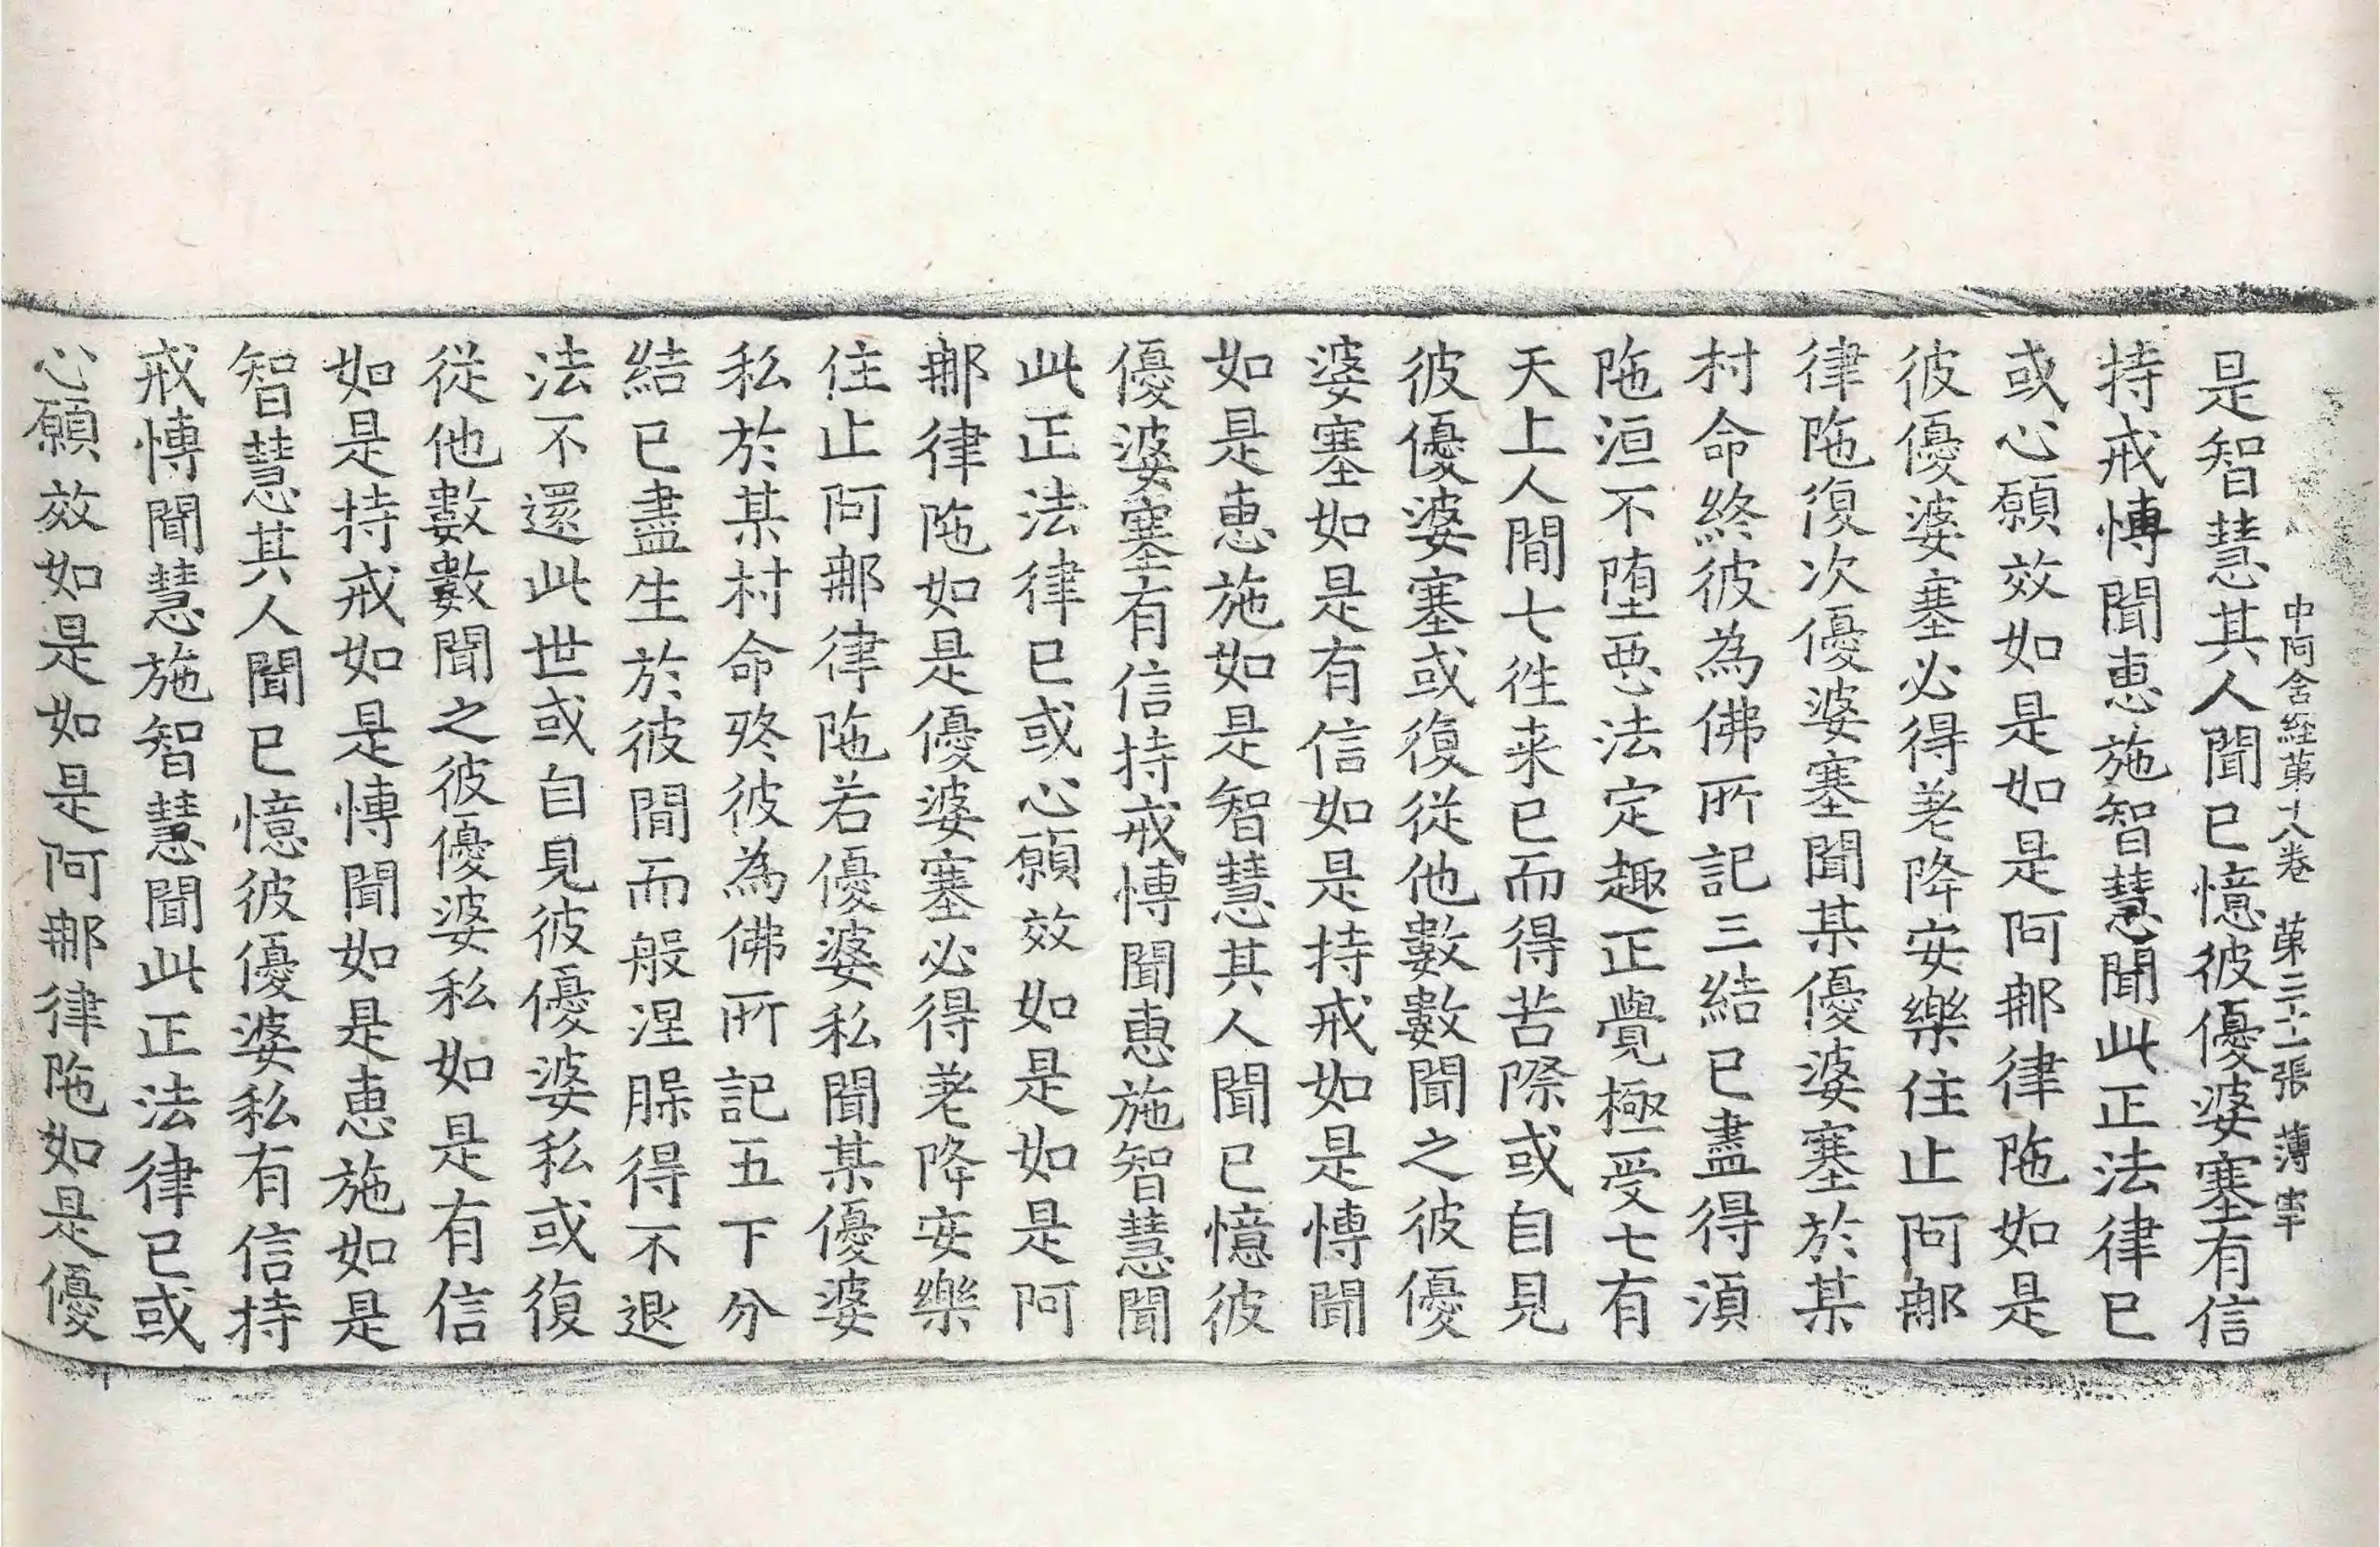 中阿含経第十八巻　第二十二張　薄
是智慧其人聞已憶彼優婆塞有信
持戒愽聞恵施智慧聞此正法律已
或心願效如是如是阿那律陁如是
彼優婆塞必得差降安樂住止阿那
律陁復次優婆塞聞某優婆塞於某
村命終彼為佛所記三結已盡得須
陁洹不堕惡法定趣正覺極受七有
天上人間七徃来已而得苦際或自見
彼優婆塞或復從他數數聞之彼優
婆塞如是有信如是持戒如是愽聞
如是恵施如是智慧其人聞已憶彼
優婆塞有信持戒愽聞恵施智慧聞
此正法律已或心願效如是如是阿
那律陁如是優婆塞必得差降安樂
住止阿那律陁若優婆私聞某優婆
私於某村命終彼為佛所記五下分
結已盡生於彼間而般涅槃得不退
法不還此世或自見彼優婆私或復
從他數數聞之彼優婆私如是有信
如是持戒如是愽聞如是恵施如是
智慧其人聞已憶彼優婆私有信持
戒愽聞慧施智慧聞此正法律已或
心願效如是如是阿那律陁如是優